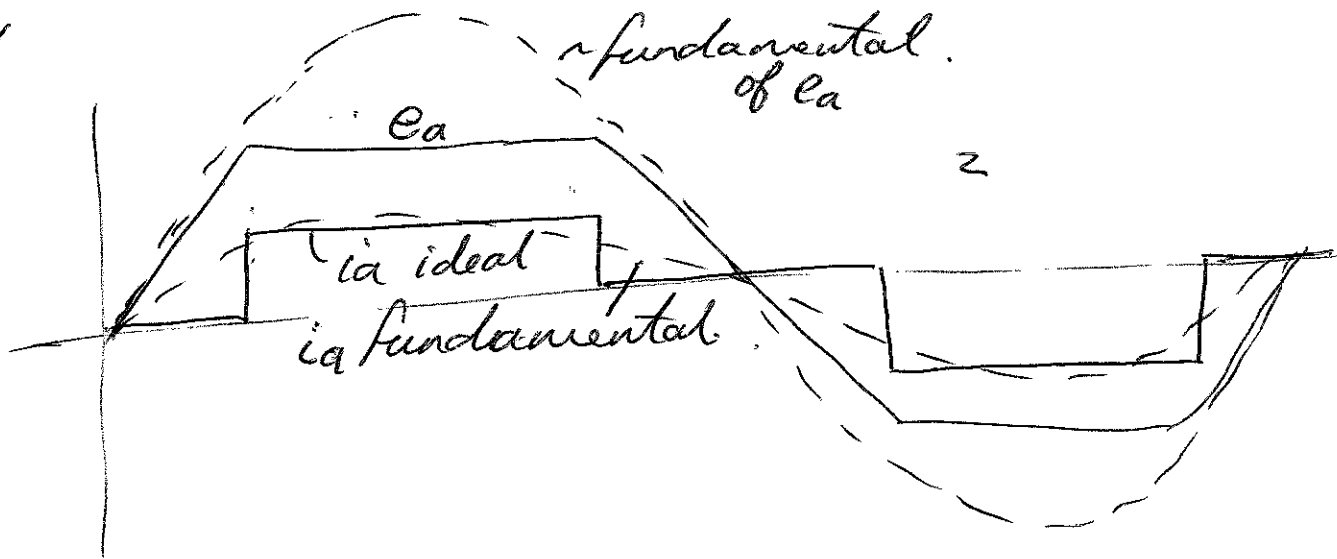 ~fundamental.
of ea
ea
2
ia ideal
ia fundamental.